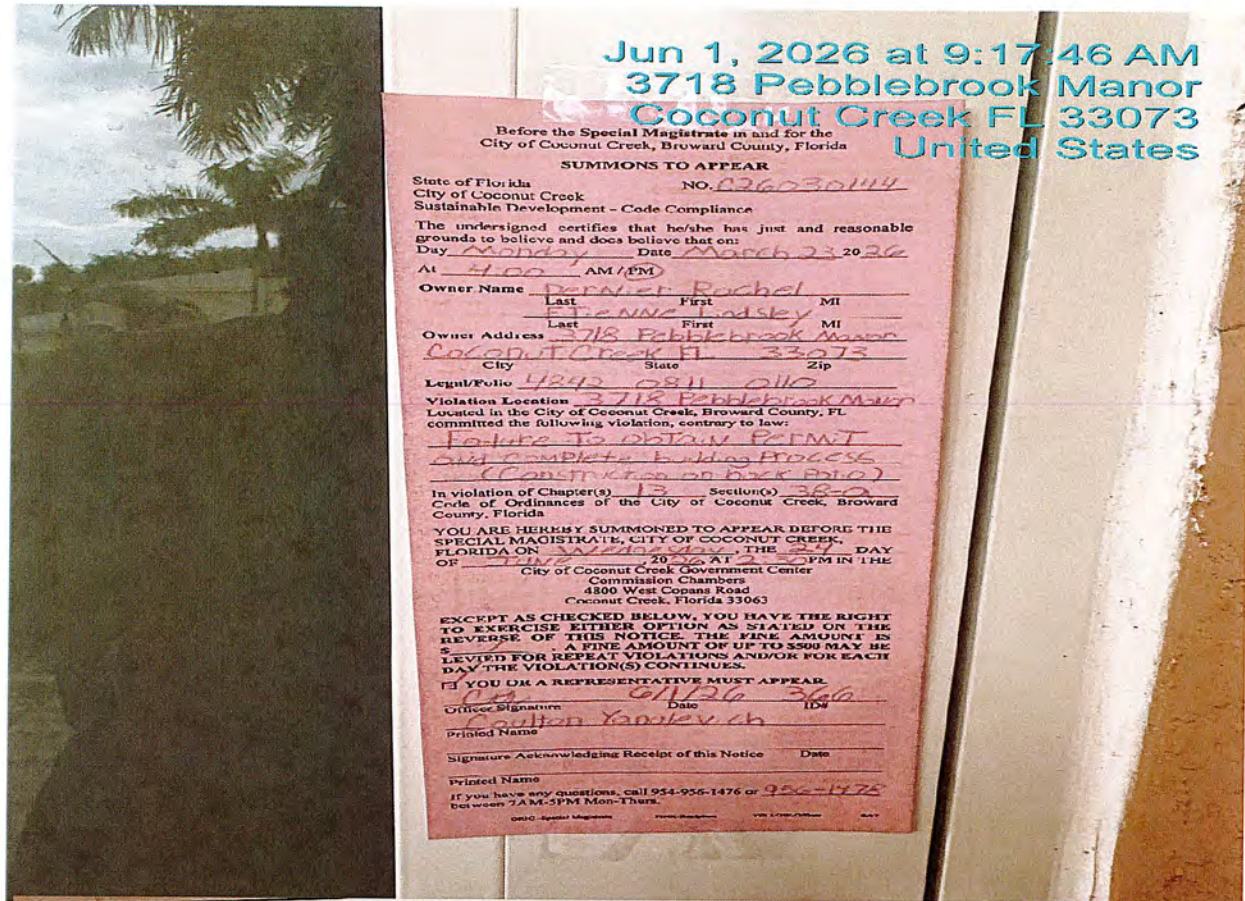 Jun 1, 2026 at 9:17:46 AM
3718 Pebblebrook Manor
Coconut Creek FL 33073
United States
Before the Special Magistrate in and for the
City of Coconut Creek, Broward County, Florida
SUMMONS TO APPEAR
State of Florida NO. C26030144
City of Coconut Creek
Sustainable Development - Code Compliance
The undersigned certifies that he/she has just and reasonable
grounds to believe and does believe that on:
Day Monday Date March 23 20 26
At 4:00 AM / PM
Owner Name Dernier Rachel
Last First MI
ETIENNE Lindsley
Last First MI
Owner Address 3718 Pebblebrook Manor
Coconut Creek FL 33073
City State Zip
Legal/Folio 4842 0811 0110
Violation Location 3718 Pebblebrook Manor
Located in the City of Coconut Creek, Broward County, FL
committed the following violation, contrary to law:
Failure To obtain Permit
and complete building Process
(Construction on back Patio)
In violation of Chapter(s) 13 Section(s)
Code of Ordinances of the City of Coconut Creek, Broward
County, Florida
YOU ARE HEREBY SUMMONED TO APPEAR BEFORE THE
SPECIAL MAGISTRATE, CITY OF COCONUT CREEK,
FLORIDA ON Wednesday, THE 24 DAY
OF JUNE, 2026 AT 2:30 PM IN THE
City of Coconut Creek Government Center
Commission Chambers
4800 West Copans Road
Coconut Creek, Florida 33063
EXCEPT AS CHECKED BELOW, YOU HAVE THE RIGHT
TO EXERCISE EITHER OPTION AS STATED ON THE
REVERSE OF THIS NOTICE. THE FINE AMOUNT IS
$ A FINE AMOUNT OF UP TO $500 MAY BE
LEVIED FOR REPEAT VIOLATIONS AND/OR FOR EACH
DAY THE VIOLATION(S) CONTINUES.
YOU OR A REPRESENTATIVE MUST APPEAR
6/1/26 366
Officer Signature Date ID#
Coulton Yanalevich
Printed Name
Signature Acknowledging Receipt of this Notice Date
Printed Name
If you have any questions, call 954-956-1476 or 956-1478
between 7AM-5PM Mon-Thurs.
ORIG - Special Magistrate